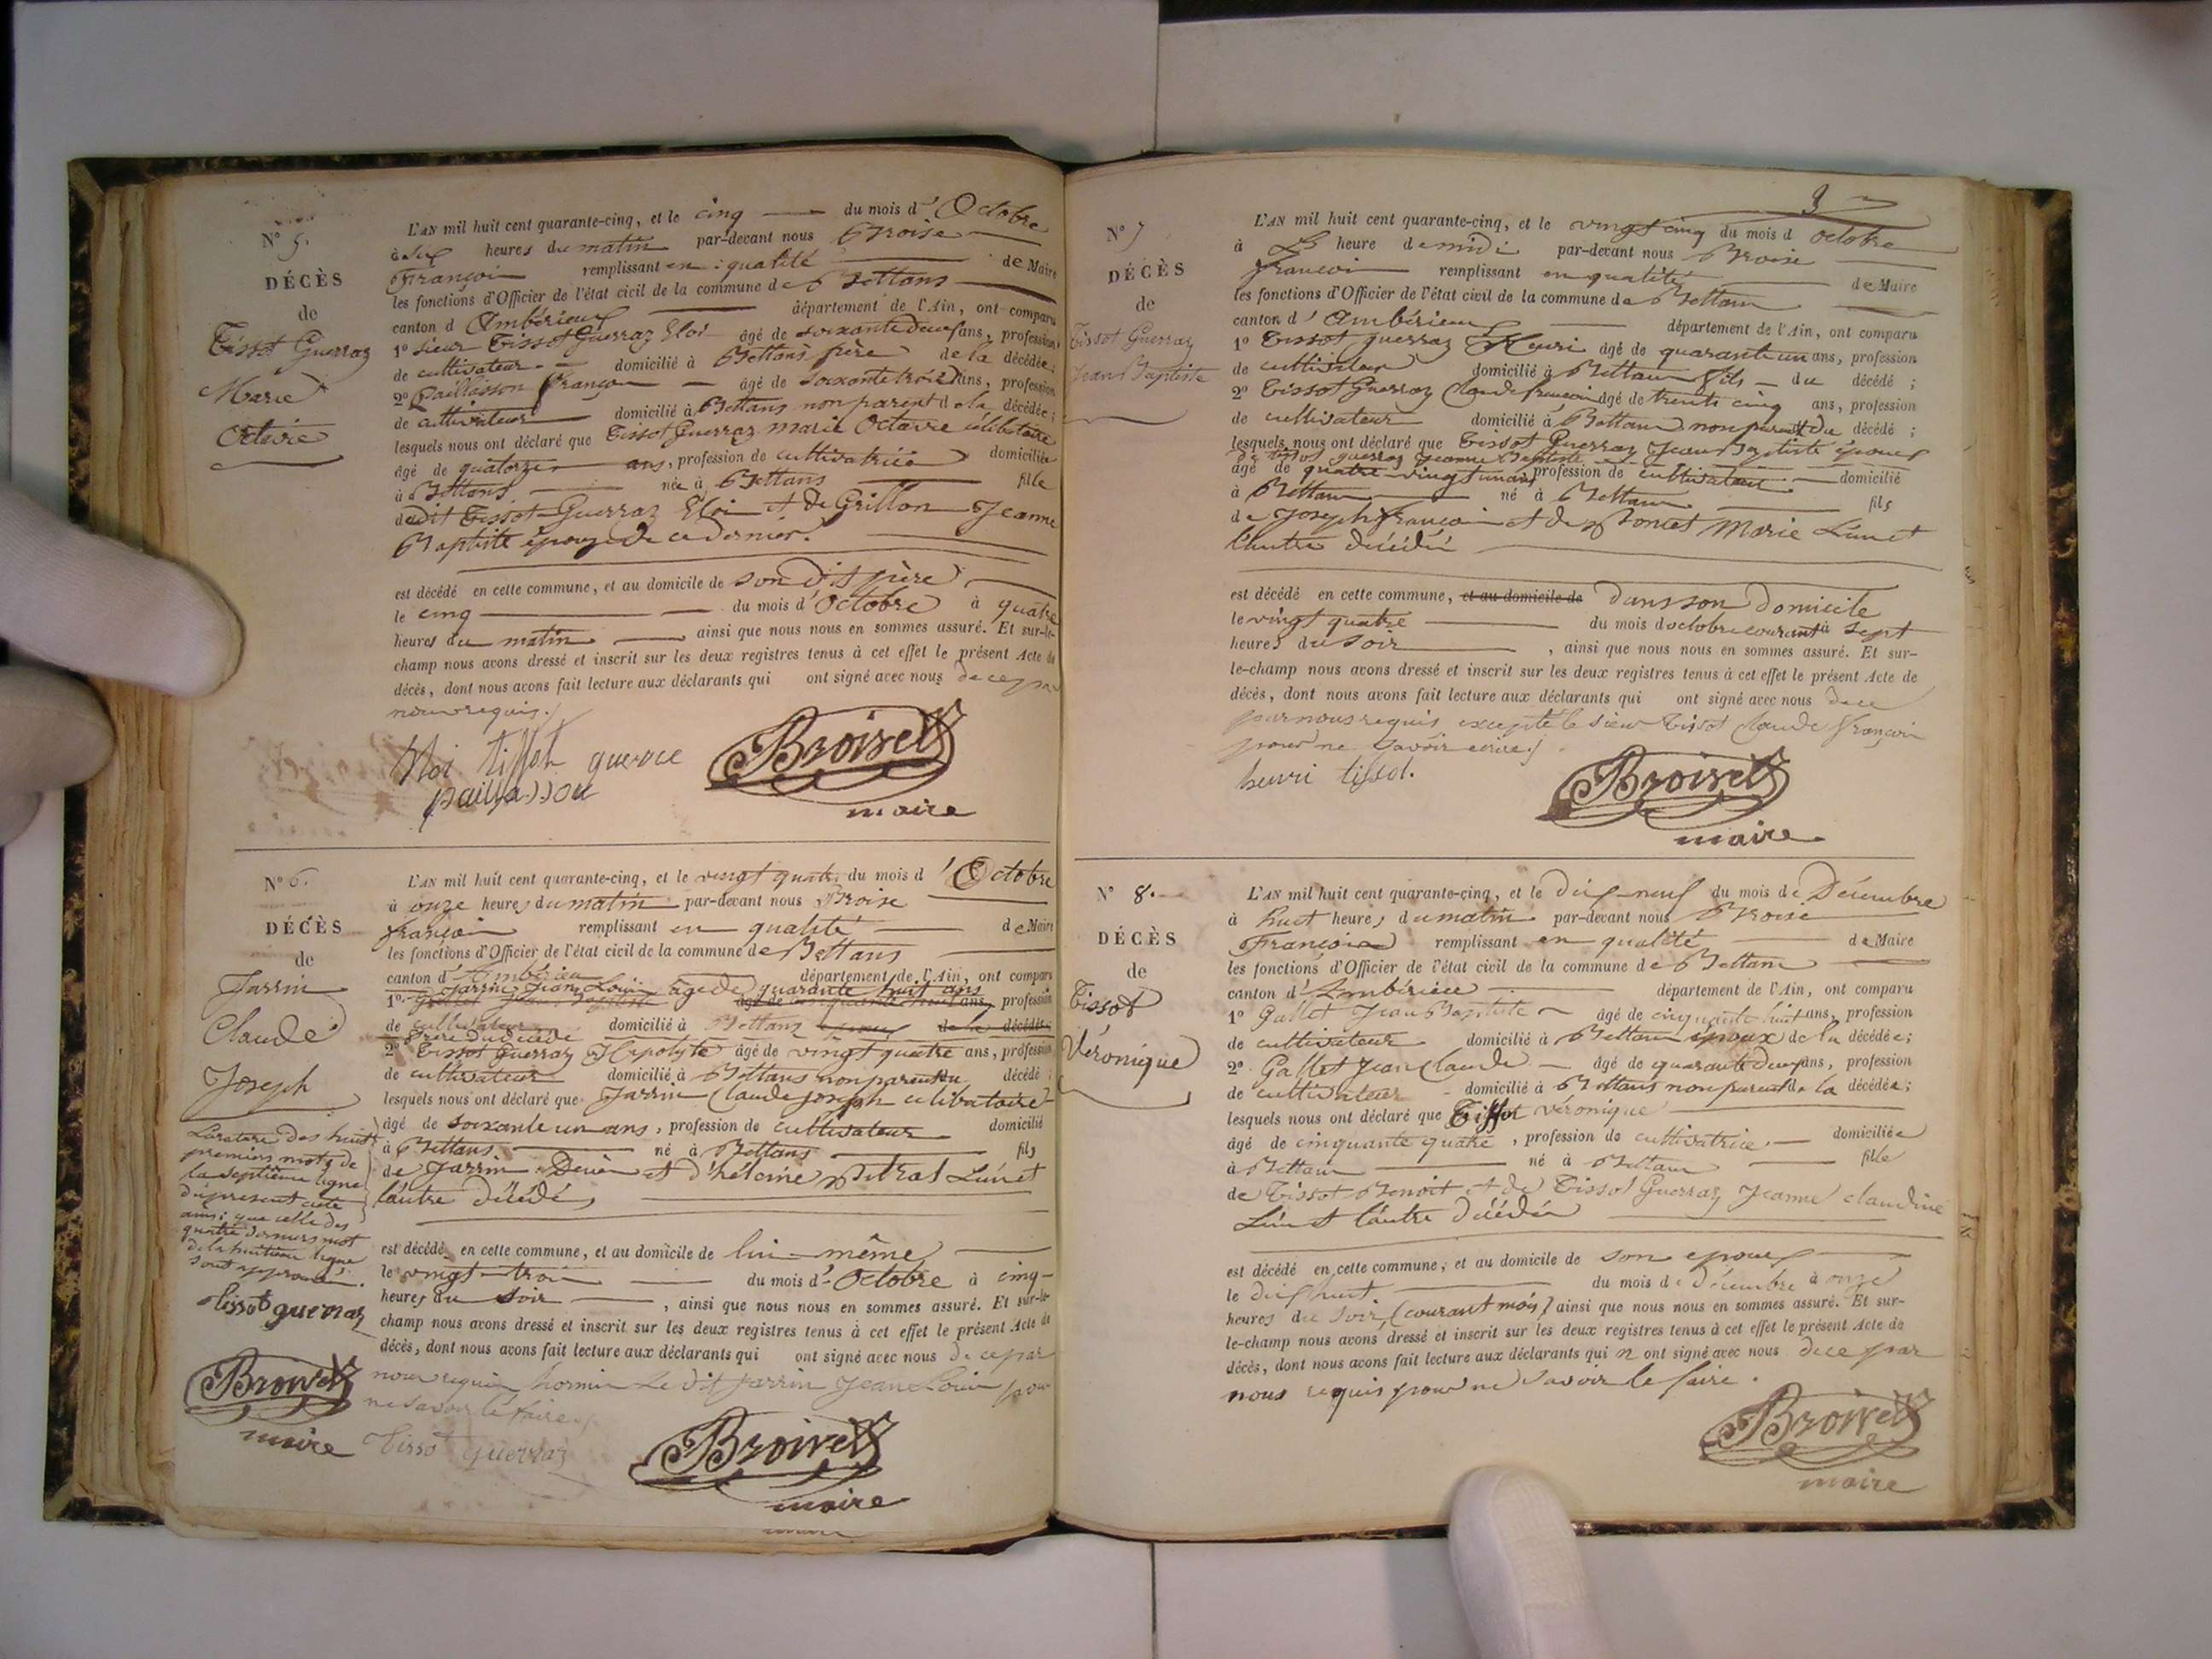 N° 5.
DÉCÈS
de
Tissot Guerraz
Marie
Octavie
L'AN mil huit cent quarante-cinq, et le cinq du mois d'Octobre
à six heures du matin par-devant nous Broise
François remplissant en qualité de Maire
les fonctions d'Officier de l'état civil de la commune de Bettans
canton d'Ambérieux département de l'Ain, ont comparu
1° sieur Tissot Guerraz Eloi âgé de soixante deux ans, profession
de cultivateur domicilié à Bettans père de la décédée;
2° Paillasson François âgé de soixante trois ans, profession
de cultivateur domicilié à Bettans non parent de la décédée;
lesquels nous ont déclaré que Tissot Guerraz marie Octavie célibataire
âgé de quatorze ans, profession de cultivatrice domiciliée
à Bettans née à Bettans fille
dudit Tissot Guerraz Eloi et de Grillon Jeanne
Baptiste épouse de ce dernier.
est décédé en cette commune, et au domicile de son dit père
le cinq du mois d'Octobre à quatre
heures du matin ainsi que nous nous en sommes assuré. Et sur-le-
champ nous avons dressé et inscrit sur les deux registres tenus à cet effet le présent Acte de
décès, dont nous avons fait lecture aux déclarants qui ont signé avec nous de ce par
nous requis.
tissot guerace
paillasson
Broise
maire
N° 6.
DÉCÈS
de
Jarrin
Claude
Joseph
L'AN mil huit cent quarante-cinq, et le vingt quatre du mois d'Octobre
à onze heures du matin par-devant nous Broise
françois remplissant en qualité de Maire
les fonctions d'Officier de l'état civil de la commune de Bettans
canton d'Ambérieu département de l'Ain, ont comparu
Jarrin Jean Louis âgé de quarante huit ans
1° profession
de cultivateur domicilié à Bettans époux de la décédée
frère du décédé
2° Tissot Guerraz Hipolyte âgé de vingt quatre ans, profession
de cultivateur domicilié à Bettans non parent du décédé;
lesquels nous ont déclaré que Jarrin Claude Joseph célibataire
âgé de soixante un ans, profession de cultivateur domicilié
à Bettans né à Bettans fils
de Jarrin et d'héloine L'un et
l'autre décédés
est décédé en cette commune, et au domicile de lui-même
le vingt-trois du mois d'Octobre à cinq
heures du soir, ainsi que nous nous en sommes assuré. Et sur-le-
champ nous avons dressé et inscrit sur les deux registres tenus à cet effet le présent Acte de
décès, dont nous avons fait lecture aux déclarants qui ont signé avec nous de ce par
nous requis hormis Le dit Jarrin Jean Louis pour
ne savoir le faire
Tissot guerraz
Broise
maire
La rature des huit
premiers mots de
la septième ligne
du présent acte
ainsi que celle des
quatre derniers mot
de la huitième ligne
sont approuvé.
tissot guerraz
Broise
maire
3
N° 7
DÉCÈS
de
Tissot Guerraz
Jean Baptiste
L'AN mil huit cent quarante-cinq, et le vingt cinq du mois d octobre
à heure de midi par-devant nous Broise
françois remplissant en qualité de Maire
les fonctions d'Officier de l'état civil de la commune de Bettans
canton d'Ambérieux département de l'Ain, ont comparu
1° Tissot guerraz Henri âgé de quarante un ans, profession
de cultivateur domicilié à Bettans fils du décédé;
2° Tissot Guerraz Claude françois âgé de trente cinq ans, profession
de cultivateur domicilié à Bettans non parent du décédé;
lesquels nous ont déclaré que Tissot Guerraz Jean Baptiste époux
de tissot guerraz jeanne Baptiste
âgé de quatre-vingt un ans, profession de cultivateur domicilié
à Bettans né à Bettans fils
de Joseph françois et de Poncet Marie L'un et
l'autre décédés
est décédé en cette commune, et au domicile de dans son Domicile
le vingt quatre du mois d'octobre courant à sept
heures du soir, ainsi que nous nous en sommes assuré. Et sur-
le-champ nous avons dressé et inscrit sur les deux registres tenus à cet effet le présent Acte de
décès, dont nous avons fait lecture aux déclarants qui ont signé avec nous de ce
par nous requis excepté le sieur Tissot Claude françois
pour ne savoir écrire.
henri tissot.
Broise
maire
N° 8.
DÉCÈS
de
Tissot
Véronique
L'AN mil huit cent quarante-cinq, et le dix-neuf du mois de Décembre
à huit heures du matin par-devant nous Broise
François remplissant en qualité de Maire
les fonctions d'Officier de l'état civil de la commune de Bettans
canton d'Ambérieu département de l'Ain, ont comparu
1° Gallet Jean Baptiste âgé de cinquante huit ans, profession
de cultivateur domicilié à Bettans époux de la décédée;
2° Gallet Jean Claude âgé de quarante deux ans, profession
de cultivateur domicilié à Bettans non parent de la décédée;
lesquels nous ont déclaré que Tissot véronique
âgé de cinquante quatre, profession de cultivatrice domiciliée
à Bettans né à Bettans fille
de Tissot Benoit et de Tissot Guerraz Jeanne claudine
L'un et l'autre décédés
est décédé en cette commune, et au domicile de son époux
le dix huit du mois de décembre à onze
heures du soir (courant mois) ainsi que nous nous en sommes assuré. Et sur-
le-champ nous avons dressé et inscrit sur les deux registres tenus à cet effet le présent Acte de
décès, dont nous avons fait lecture aux déclarants qui n ont signé avec nous de ce par
nous requis pour ne savoir le faire.
Broise
maire